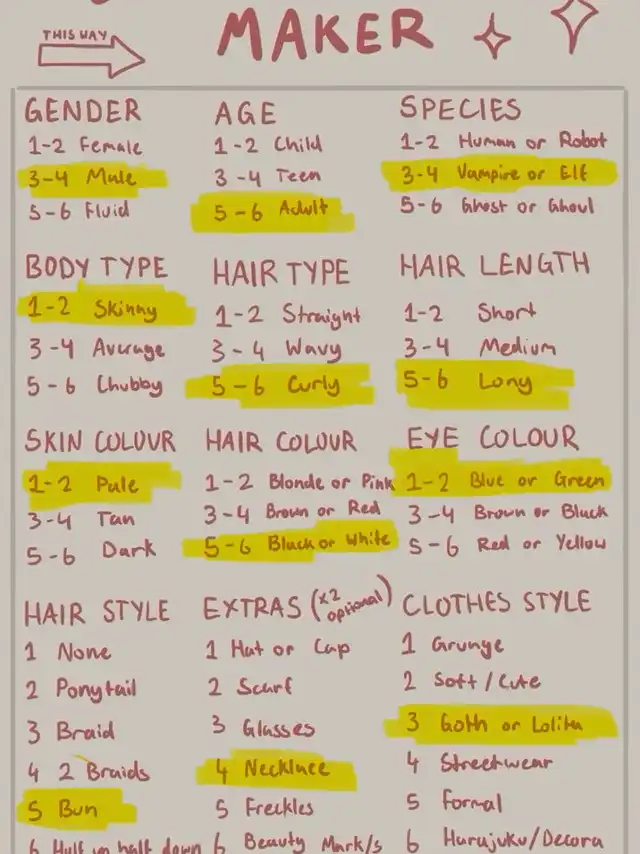 THIS WAY
MAKER
GENDER
1-2 Female
3-4 Male
5-6 Fluid
AGE
1-2 Child
3-4 Teen
5-6 Adult
SPECIES
1-2 Human or Robot
3-4 Vampire or Elf
5-6 Ghost or Ghoul
BODY TYPE
1-2 Skinny
3-4 Average
5-6 Chubby
HAIR TYPE
1-2 Straight
3-4 Wavy
5-6 Curly
HAIR LENGTH
1-2 Short
3-4 Medium
5-6 Long
SKIN COLOUR
1-2 Pale
3-4 Tan
5-6 Dark
HAIR COLOUR
1-2 Blonde or Pink
3-4 Brown or Red
5-6 Black or White
EYE COLOUR
1-2 Blue or Green
3-4 Brown or Black
5-6 Red or Yellow
HAIR STYLE
1 None
2 Ponytail
3 Braid
4 2 Braids
5 Bun
6 Half up half down
EXTRAS (x2 optional)
1 Hat or Cap
2 Scarf
3 Glasses
4 Necklace
5 Freckles
6 Beauty Mark/s
CLOTHES STYLE
1 Grunge
2 Soft/Cute
3 Goth or Lolita
4 Streetwear
5 Formal
6 Harajuku/Decora